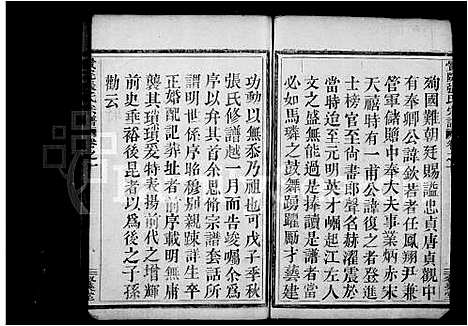 殉國難朝廷賜謚忠貞唐貞觀中
有奉卿公諱欽若者任鳳翔尹兼
管軍儲隨中奉大夫事業炳赤宋
天禧時有一甫公諱復之者登進
士榜官至尚書郎聲名赫濯震一
當時迨至元明英才崛起江左人
文之盛無能過是捧讀是譜者當
如馬璘之鼓舞踴躍勵才藝建
功勳以無忝乃祖也可戊子季秋
張氏修譜越一月而告竣囑余為
序以弁其首余思修宗譜套話所
謂明世係序昭穆别親踈詳生卒
正婚配記葬址者前序載明無庸
襲其瑣瑣爰特表揚前代之增輝
前史垂裕後昆者以為後之子孫
勸云